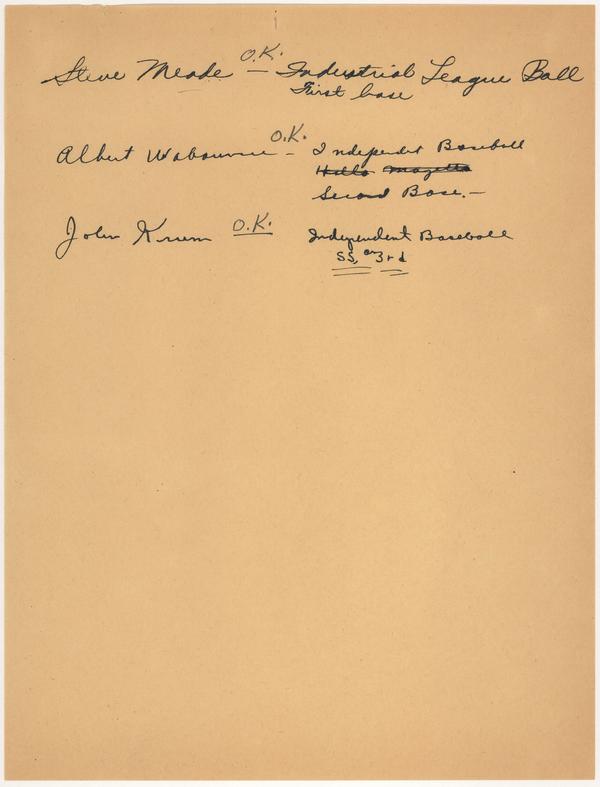 Steve Meade O.K. — Industrial League Ball
First base
Albert Wabourne O.K. — Independet Baseball
Second Base. —
John Krum O.K. Independent Baseball
SS, or 3rd